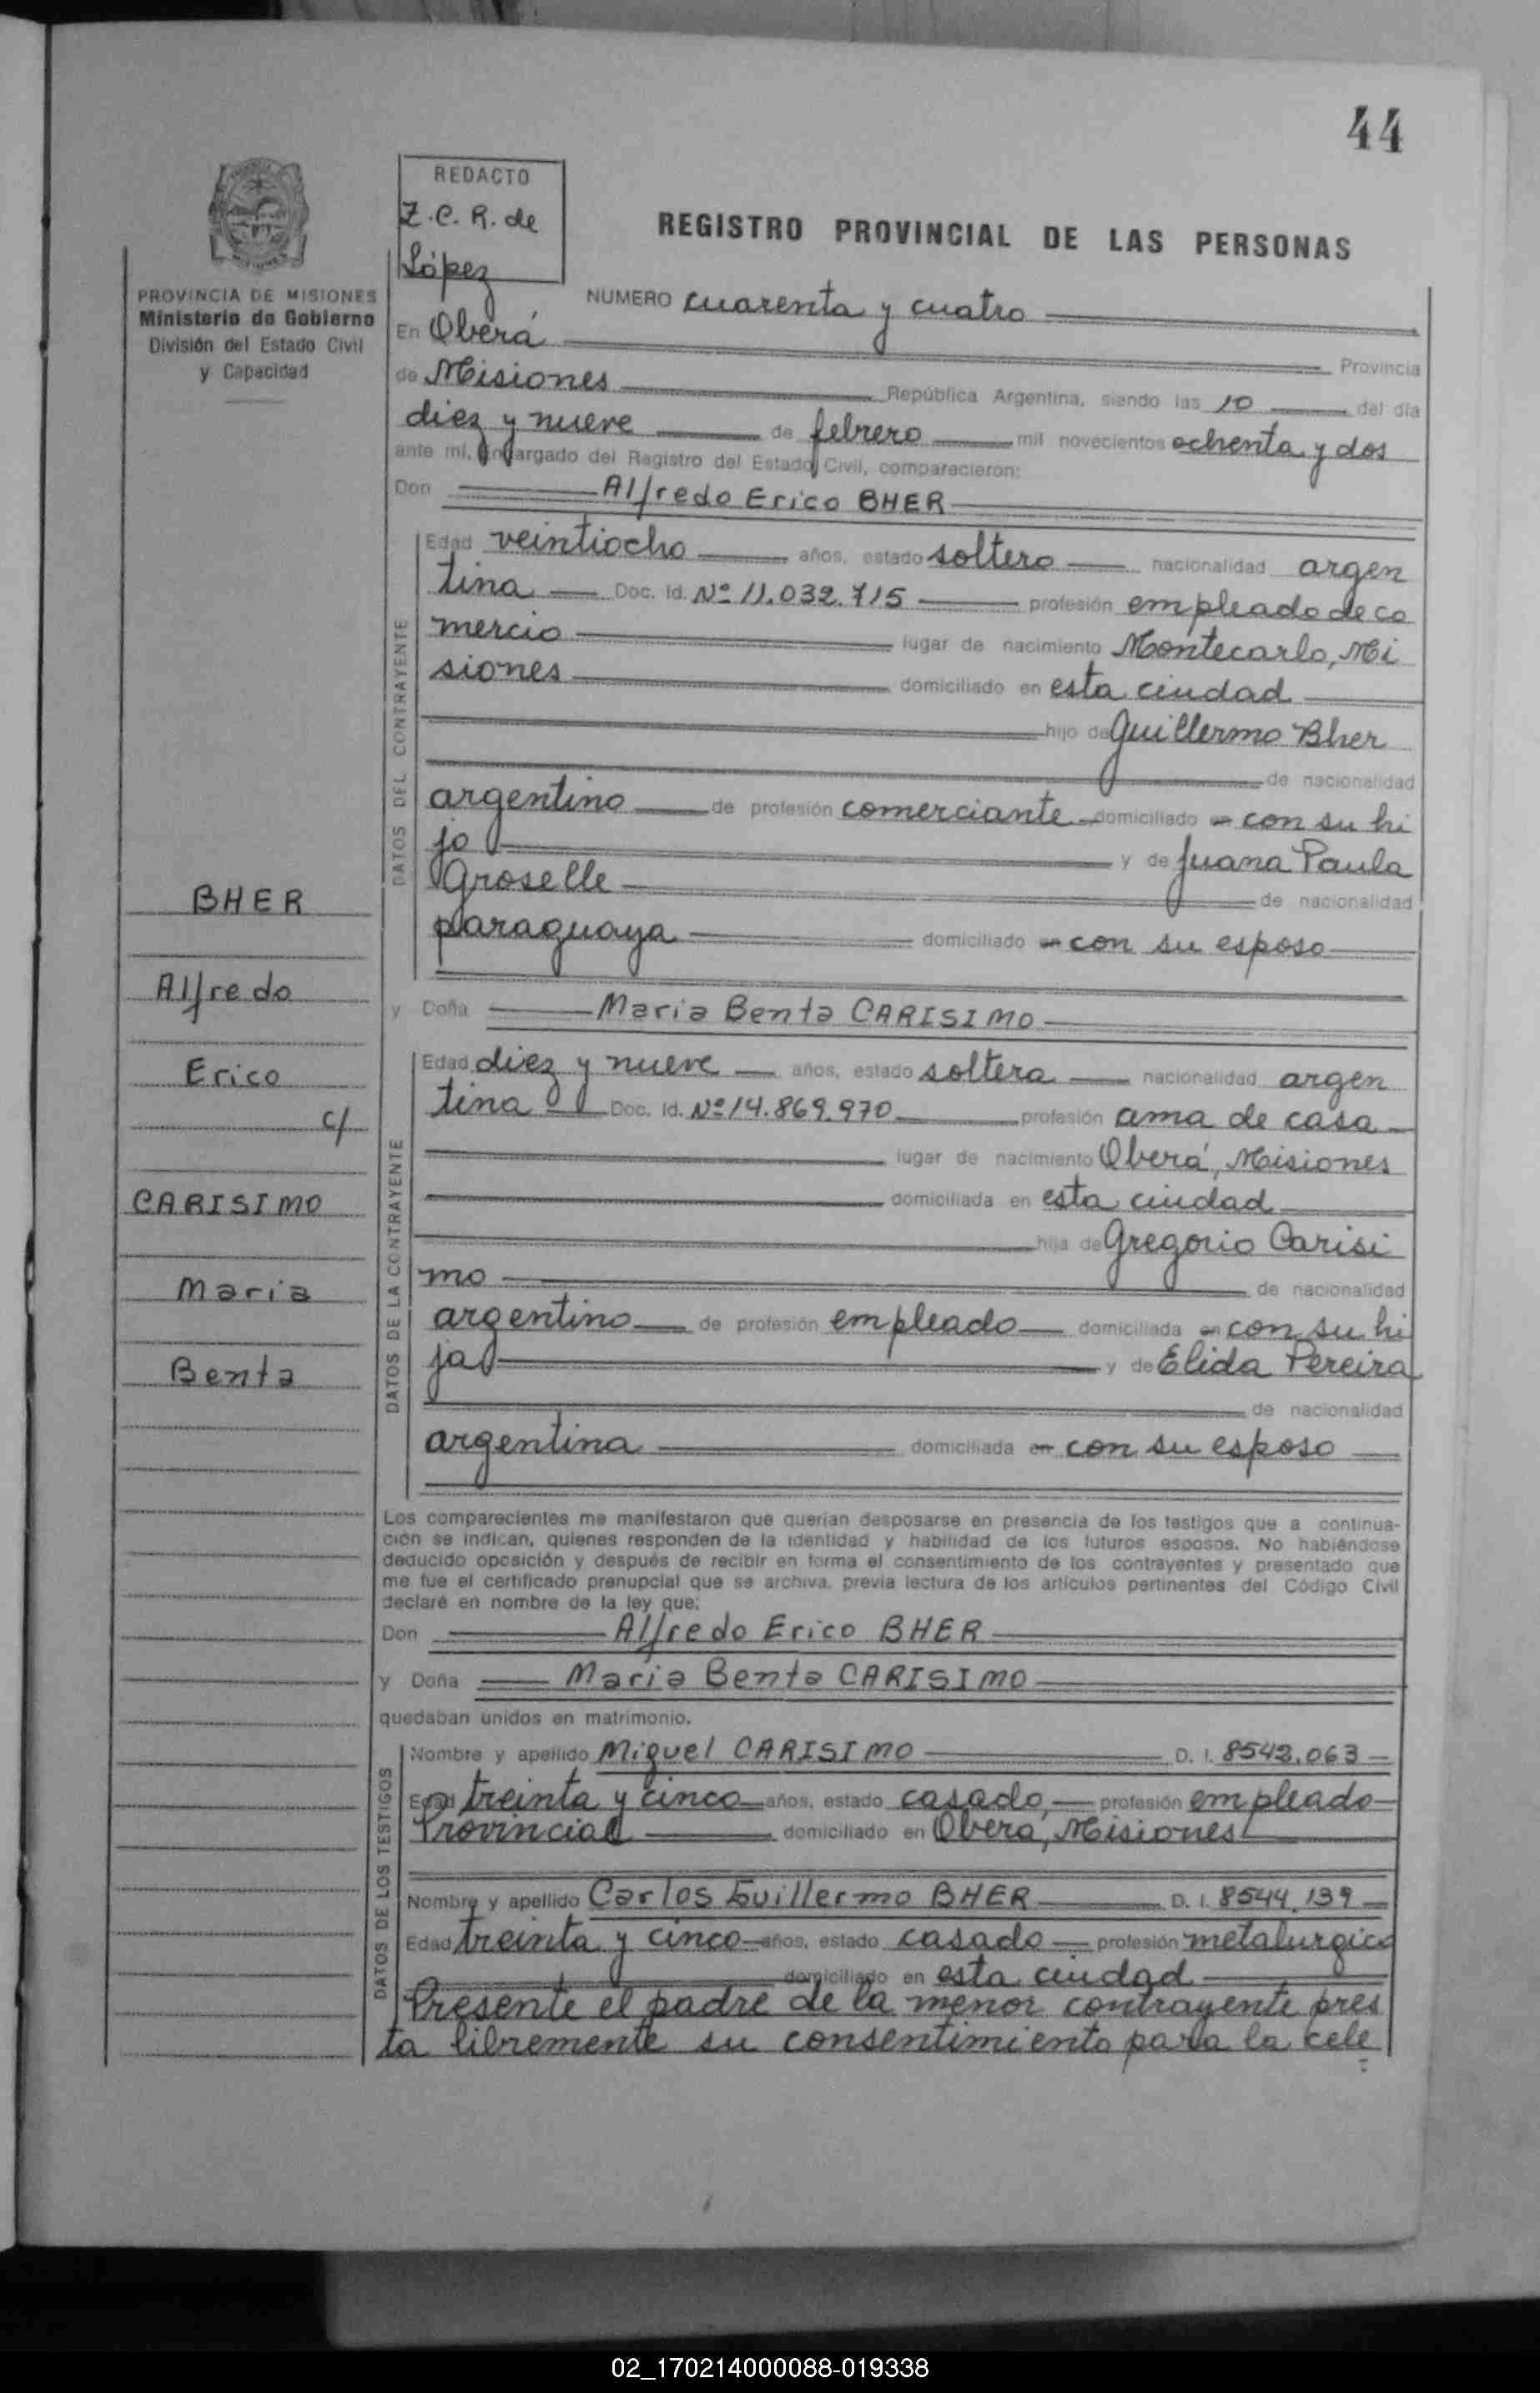 44
REDACTO
Z.C.R. de
López
REGISTRO PROVINCIAL DE LAS PERSONAS
PROVINCIA DE MISIONES
Ministerio de Gobierno
División del Estado Civil
y Capacidad
NUMERO cuarenta y cuatro
En Oberá
Provincia
de Misiones República Argentina, siendo las 10 del día
diez y nueve de febrero mil novecientos ochenta y dos
ante mí, Encargado del Registro del Estado Civil, comparecieron:
Don Alfredo Erico BHER
DATOS DEL CONTRAYENTE
Edad veintiocho años, estado soltero nacionalidad argen
tina Doc. Id. Nº 11.032.715 profesión empleado de co
mercio lugar de nacimiento Montecarlo, Mi
siones domiciliado en esta ciudad
hijo de Guillermo Bher
de nacionalidad
argentino de profesión comerciante domiciliado en con su hi
jo y de Juana Paula
Groselle de nacionalidad
paraguaya domiciliado en con su esposo
y Doña Maria Benta CARISIMO
DATOS DE LA CONTRAYENTE
Edad diez y nueve años, estado soltera nacionalidad argen
tina Doc. Id. Nº 14.869.970 profesión ama de casa
lugar de nacimiento Oberá, Misiones
domiciliada en esta ciudad
hija de Gregorio Carisi
mo de nacionalidad
argentino de profesión empleado domiciliada en con su hi
ja y de Elida Pereira
de nacionalidad
argentina domiciliada en con su esposo
Los comparecientes me manifestaron que querían desposarse en presencia de los testigos que a continua-
ción se indican, quienes responden de la identidad y habilidad de los futuros esposos. No habiéndose
deducido oposición y después de recibir en forma el consentimiento de los contrayentes y presentado que
me fue el certificado prenupcial que se archiva, previa lectura de los artículos pertinentes del Código Civil
declaré en nombre de la ley que:
Don Alfredo Erico BHER
y Doña Maria Benta CARISIMO
quedaban unidos en matrimonio.
DATOS DE LOS TESTIGOS
Nombre y apellido Miguel CARISIMO D. I. 8542.063
Edad treinta y cinco años, estado casado profesión empleado
Provincial domiciliado en Oberá, Misiones
Nombre y apellido Carlos Guillermo BHER D. I. 8544.139
Edad treinta y cinco años, estado casado profesión metalurgico
domiciliado en esta ciudad
Presente el padre de la menor contrayente pres
ta libremente su consentimiento para la cele
BHER
Alfredo
Erico
c/
CARISIMO
Maria
Benta
02_170214000088-019338